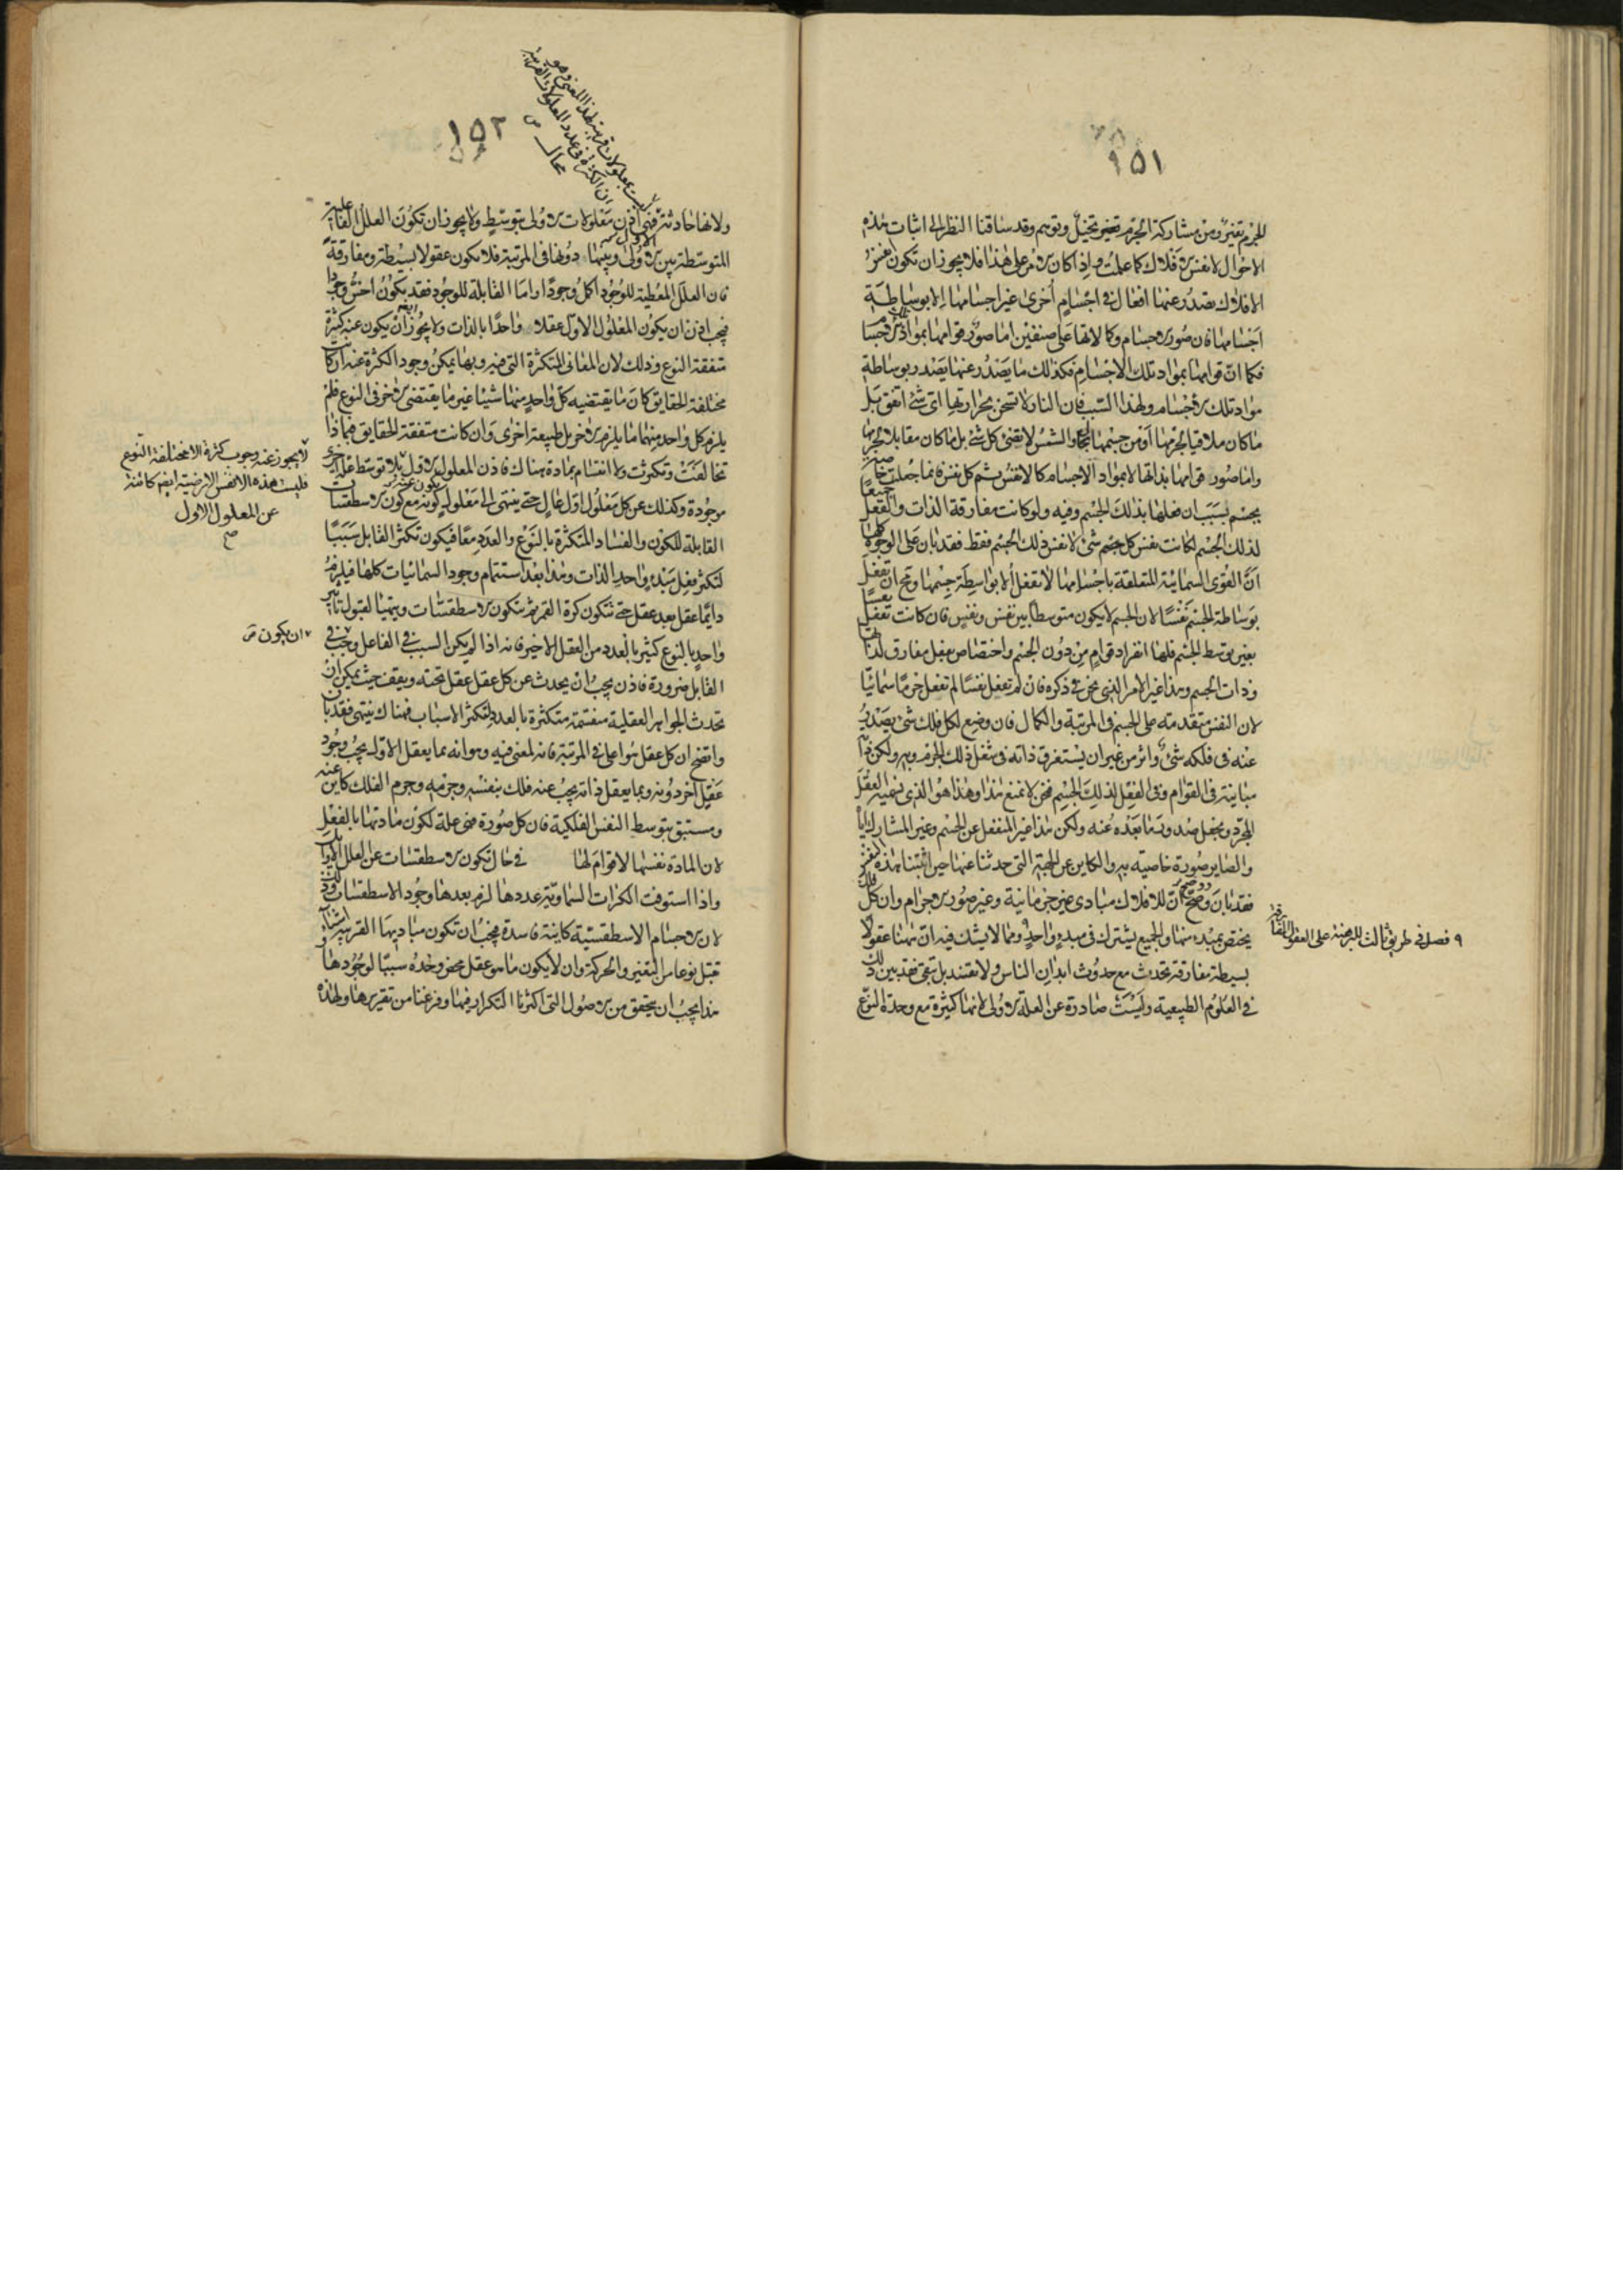 ١٥١
الجرم تغير ومن مشاركة الجرم تغير وتخيل وتوهم وقد ساقنا النظر الى اثبات هذه
الاحوال لانفس الافلاك كما علمت واذا كان الامر على هذا فلا يجوز ان تكون انفس
الافلاك تصدر عنها افعال فى اجسام اخرى غير اجسامها الا بوساطة
اجسامها فان صور الاجسام وكمالاتها على صنفين اما صور قوامها بمواد الاجسام
فكما ان قوامها بمواد تلك الاجسام فكذلك ما يصدر عنها يصدر بوساطة
مواد تلك الاجسام ولهذا السبب فان النار لا تسخن بحرارتها اى شئ اتفق بل
ما كان ملاقيا لجرمها او من جسمها بحال والشمس لا تضئ كل شئ بل ما كان مقابلا لجرمها
واما صور قوامها بذاتها لا بمواد الاجسام كالانفس ثم كل نفس فانما جعلت خاصية
بجسم بسبب ان فعلها بذلك الجسم وفيه ولو كانت مفارقة الذات والفعل جميعا
لذلك الجسم لكانت نفس كل شئ لا نفس ذلك الجسم فقط فقد بان على الوجوه كلها
ان القوى السمائية المتعلقة باجسامها لا تفعل الا بواسطة جسمها ومح ان تفعل
بوساطة الجسم نفسا لان الجسم لا يكون متوسطا بين نفس ونفس فان كانت تفعل نفسا
بغير توسط الجسم فلها انفراد قوام من دون الجسم واختصاص بفعل مفارق لذاتها
وذات الجسم وهذا غير الامر الذى نحن فى ذكره فان لم تفعل نفسا لم تفعل جرما سمائيا
لان النفس متقدمة على الجسم فى المرتبة والكمال فان وضع لكل فلك شئ يصدر
عنه فى فلكه شئ واثر من غير ان يستغرق ذاته فى شغل ذلك الجرم وبه ولكن ذاته
مباينة فى القوام وفى الفعل لذلك الجسم فنحن لا نمنع هذا وهذا هو الذى نسميه العقل
المجرد ونجعل صدور ما بعده عنه ولكن هذا غير المنفعل عن الجسم وغير المشارك اياه
والصاير صورة خاصية به والكاين عن الجهة التى حدثنا عنها حين اثبتنا هذه النفس
فقد بان ووضح ان للافلاك مبادى غير جرمانية وغير صور الاجرام وان كل فلك
يختص بمبدء منها والجميع يشترك فى مبدء واحد ٩ ومما لا يشك فيه ان ههنا عقولا
بسيطة مفارقة تحدث مع حدوث ابدان الناس ولا تفسد بل تبقى فقد بين ذلك
فى العلوم الطبيعية وليست صادرة عن العلة الاولى لانها كثيرة مع وحدة النوع
٩ فصل فى طريق ثالث للبرهنة على العقول المفارقة
١٥٢
ليست معلولات قريبة لهذا المعنى وهو
ان الكثرة فى عدد المعلولات القريبة
محال ص
ولانها حادثة فهى اذن معلولات الاولى بتوسط ولا يجوز ان تكون العلل الفاعلية
المتوسطة بين الاولى وبينها دونها فى المرتبة فلا تكون عقولا بسيطة ومفارقة
فان العلل المعطية للوجود اكمل وجودا واما القابلة للوجود فقد يكون اخس وجودا
فيجب اذن ان يكون المعلول الاول عقلا واحدا بالذات ولا يجوز ايضا ان يكون عنه كثرة
متفقة النوع وذلك لان المعانى المتكثرة التى فيه وبها يمكن وجود الكثرة عنه ان كانت
مختلفة الحقايق كان ما يقتضيه كل واحد منها شيئا غير ما يقتضى الاخر فى النوع فلم
يلزم كل واحد منها ما يلزم الاخر بل طبيعة اخرى وان كانت متفقة الحقايق فبماذا
تخالفت وتكثرت ولا انقسام بمادة هناك فاذن المعلول الاول بلا توسط علة اخرى
موجودة وكذلك عن كل معلول اول عال حتى ينتهى الى معلول يكون كونه مع كون الاسطقسات
القابلة للكون والفساد المتكثرة بالنوع والعدد معا فيكون تكثر القابل سببا
لتكثر فعل مبدء واحد الذات وهذا بعد استتمام وجود السمائيات كلها فيلزم
دايما عقل بعد عقل حتى تتكون كرة القمر ثم تتكون الاسطقسات ويتهيأ لقبول تاثير
واحد بالنوع كثير بالعدد من العقل الاخير فانه اذا لم يكن السبب فى الفاعل وجب فى
القابل ضرورة فاذن يجب ان يحدث عن كل عقل عقل تحته ويقف حيث يمكن ان
تحدث الجواهر العقلية منقسمة متكثرة بالعدد لتكثر الاسباب فهناك ينتهى فقد بان
واتضح ان كل عقل هو اعلى فى المرتبة فانه لمعنى فيه وهو انه بما يعقل الاول يجب وجود
عقل اخر دونه وبما يعقل ذاته يجب عنه فلك بنفسه وجرمه وجرم الفلك كاين عنه
ومستبق بتوسط النفس الفلكية فان كل صورة فهى علة لكون مادتها بالفعل
لان المادة نفسها لا قوام لها فى حال تكون الاسطقسات عن العلل الاوايل
واذا استوفت الكرات السماوية عددها لزم بعدها وجود الاسطقسات وذلك
لان الاجسام الاسطقسية كاينة فاسدة فيجب ان تكون مباديها القريبة اشياء
تقبل نوعا من التغير والحركة وان لا يكون ما هو عقل محض وحده سببا لوجودها
هذا يجب ان يتحقق من الاصول التى اكثرنا التكرار فيها وفرغنا من تقريرها ولهذه
لا يجوز عنه وجوب كثرة الا مختلفة النوع
فليست هذه الانفس الارضية ايضا كائنة
عن المعلول الاول
صح
ان يكون ص